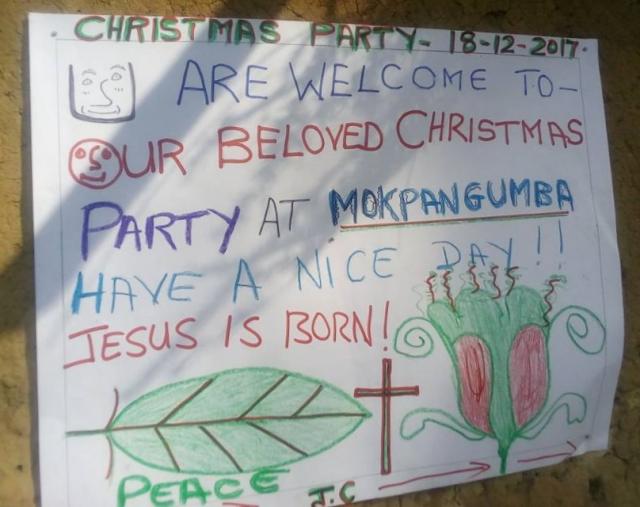 CHRISTMAS PARTY- 18-12-2017.
U ARE WELCOME TO-
OUR BELOVED CHRISTMAS
PARTY AT MOKPANGUMBA
HAVE A NICE DAY!!
JESUS IS BORN!
PEACE
J.C